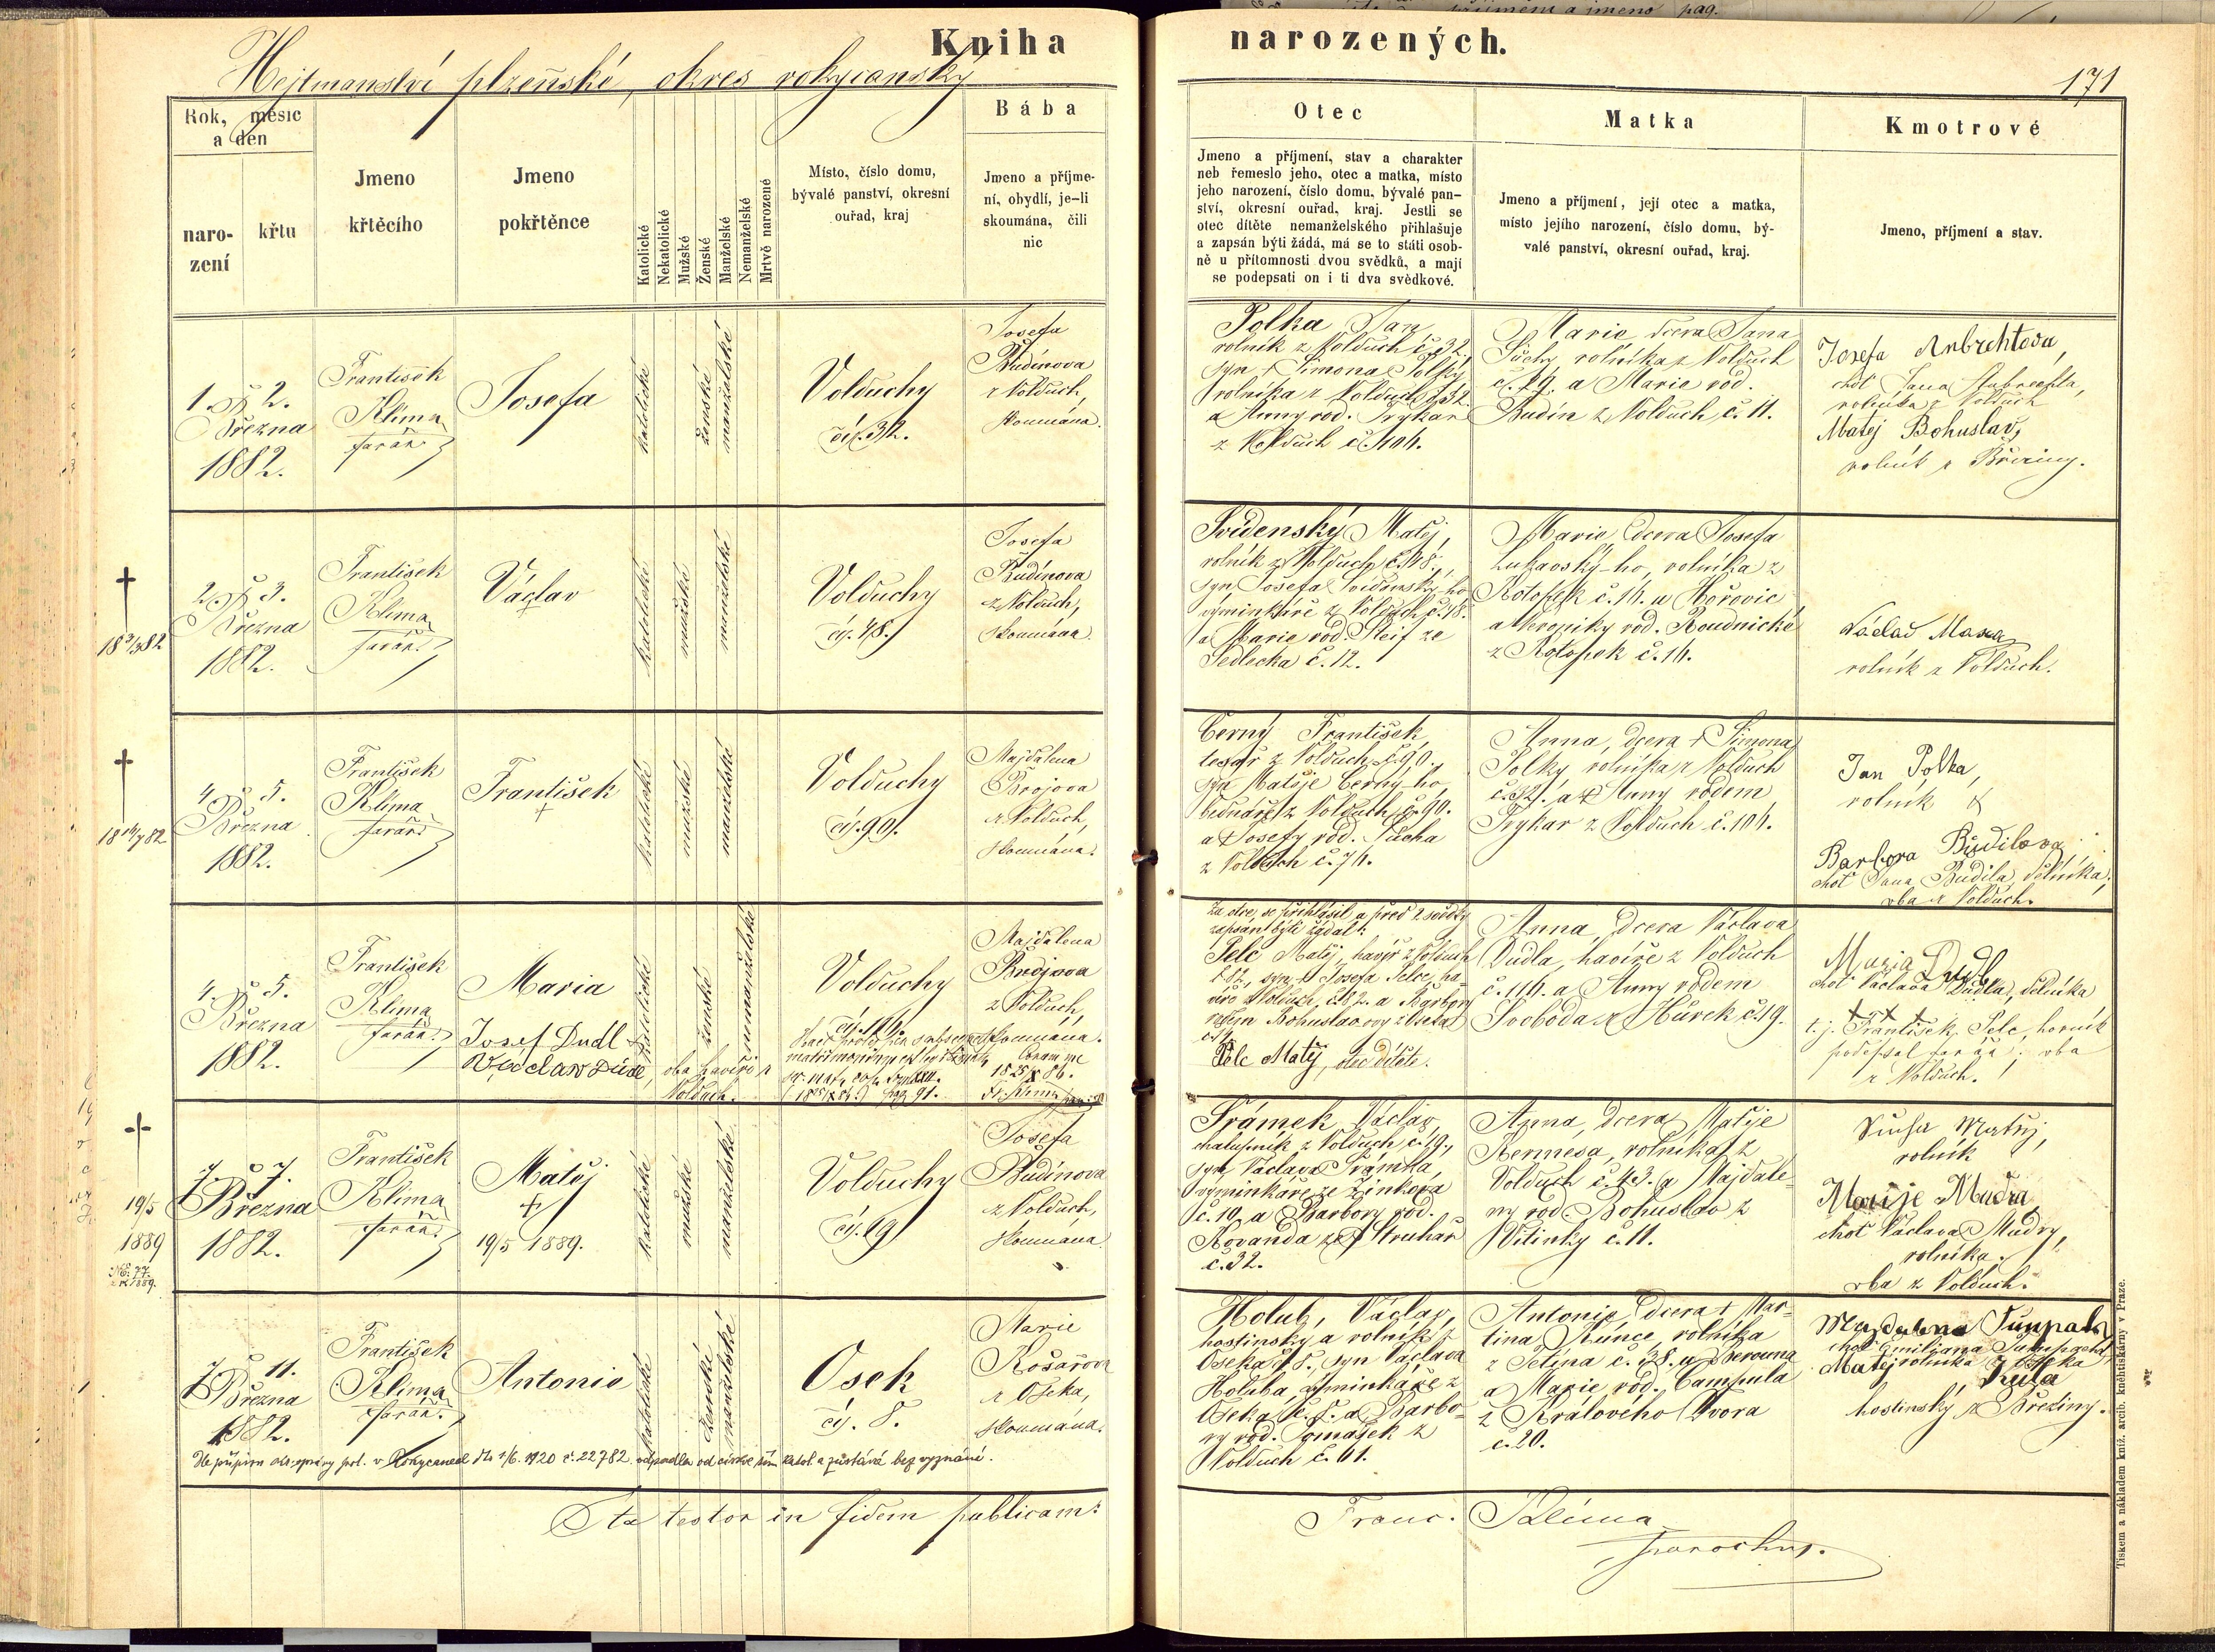 Kniha narozených.
Hejtmanství plzeňské, okres rokycanský
171
Rok, měsíc
a den
naro-
zení
křtu
Jmeno
křtěcího
Jmeno
pokřtěnce
Katolické
Nekatolické
Mužské
Ženské
Manželské
Nemanželské
Mrtvě narozené
Místo, číslo domu,
bývalé panství, okresní
ouřad, kraj
Bába
Jmeno a příjme-
ní, obydlí, je-li
skoumána, čili
nic
Otec
Jmeno a příjmení, stav a charakter
neb řemeslo jeho, otec a matka, místo
jeho narození, číslo domu, bývalé pan-
ství, okresní ouřad, kraj. Jestli se
otec dítěte nemanželského přihlašuje
a zapsán býti žádá, má se to státi osob-
ně u přítomnosti dvou svědků, a mají
se podepsati on i ti dva svědkové.
Matka
Jmeno a příjmení, její otec a matka,
místo jejího narození, číslo domu, bý-
valé panství, okresní ouřad, kraj.
Kmotrové
Jmeno, příjmení a stav.
1. 2.
Března
1882.
František
Klima
farář
Josefa
katolické
ženské
manželské
Volduchy
čís. 32.
Josefa
Budínova
z Volduch,
skoumána.
Polka Jan,
rolník z Volduch č. 32.
syn + Šimona Polky
rolníka z Volduch č. 32.
a Anny rod. Trykar
z Volduch č. 104.
Marie dcera Jana
Súchy, rolníka z Volduch
č. 29. a Marie rod.
Budín z Volduch č. 11.
Josefa
choť Jana
rolníka z Volduch
Matej Bohuslav,
rolník z Březiny.
+
18 3/3 82
2. 3.
Března
1882.
František
Klima
farář
Václav
+
katolické
mužské
manželské
Volduchy
čís. 48.
Josefa
Budínova
z Volduch,
skoumána.
Svídenský Matěj,
rolník z Volduch č. 48.,
syn Josefa Svídenský-ho
výminkáře z Volduch č. 48.
a Marie rod. Šleif ze
Sedlecka č. 12.
Marie, dcera Josefa
Lukaoský-ho, rolníka z
Kotopek č. 16. u Hořovic
a Veroniky rod. Roudnické
z Kotopek č. 16.
Václav Maxa
rolník z Volduch.
+
4. 5.
Března
1882.
František
Klima
farář
František
+
katolické
mužské
manželské
Volduchy
čís. 90.
Majdalena
Brojova
z Volduch,
skoumána.
Černý František
tesař z Volduch č. 90.,
syn Matěje Černý-ho,
bednáře z Volduch č. 90.
a + Josefy rod. Súcha
z Volduch č. 76.
Anna, dcera + Šimona
Polky rolníka z Volduch
č. 32. a + Anny rodem
Trykar z Volduch č. 104.
Jan Polka,
rolník &
Barbora Budilova
choť Jana Budila, dělníka,
oba z Volduch.
4. 5.
Března
1882.
František
Klima
farář
Maria
Josef Dudl
Václav Dúdl, oba havíři z
Volduch.
katolické
ženské
nemanželské
Volduchy
čís. 116.
Majdalena
Brojova
z Volduch,
skoumána.
Za otce se přihlásil a před 2 svědky
zapsán býti žádal:
Pelc Matěj, havíř z Volduch
č. 82., syn + Josefa Pelce, ha-
víře z Volduch, č. 82. a Barbory
rodem Bohuslavovy z Oseka
Pelc Matěj, otec dítěte.
Anna, dcera Václava
Dudla, havíře z Volduch
č. 116. a Anny rodem
Svoboda z Hůrek č. 19.
Maria Dudl
choť Václava Dudla, dělníka
+ + +
t. j. František Pelc, horník
podepsal farář; oba
z Volduch.
+
19/5
1889
7. 7.
Března
1882.
František
Klima
farář
Matěj
+
19/5 1889.
katolické
mužské
manželské
Volduchy
čís. 19
Josefa
Budínova
z Volduch,
skoumána.
Šrámek Václav,
chalupník z Volduch č. 19.,
syn Václava Šrámka,
výminkáře ze Žinkova
č. 10. a Barbory rod.
Kovanda ze Struhař
č. 32.
Anna, dcera Matěje
Kennesa, rolníka z
Volduch č. 43. a Majdale-
ny rod. Bohuslav z
Vitinky č. 11.
Súcha Matěj,
rolník
Marije Mudra
choť Václava Mudry,
rolníka.
oba z Volduch.
7. 11.
Března
1882.
František
Klima
farář
Antonie
katolické
ženské
manželské
Osek
čís. 8.
Marie
Košařova
z Oseka,
skoumána.
Holub, Václav,
hostinský a rolník z
Oseka č. 8., syn Václava
Holuba, výminkáře z
Oseka č. 8. a Barbo-
ry rod. Tomášek z
Volduch č. 61.
Antonie, dcera + Mar-
tina Kúnce, rolníka
z Tetína č. 38. u Berouna
a Marie rod. Campula
z Králového Dvora
č. 20.
Majdalena
rolníka z Oseka
Matěj Kúla
hostinský z Březiny.
1/6. 1920 č. 22782. odpadla od církve řím. katol. a zůstává bez vyznání.
Ita testor in fidem publicam:
Franc. Klima
parochus.
Tiskem a nákladem kníž. arcib. kněhtiskárny v Praze.